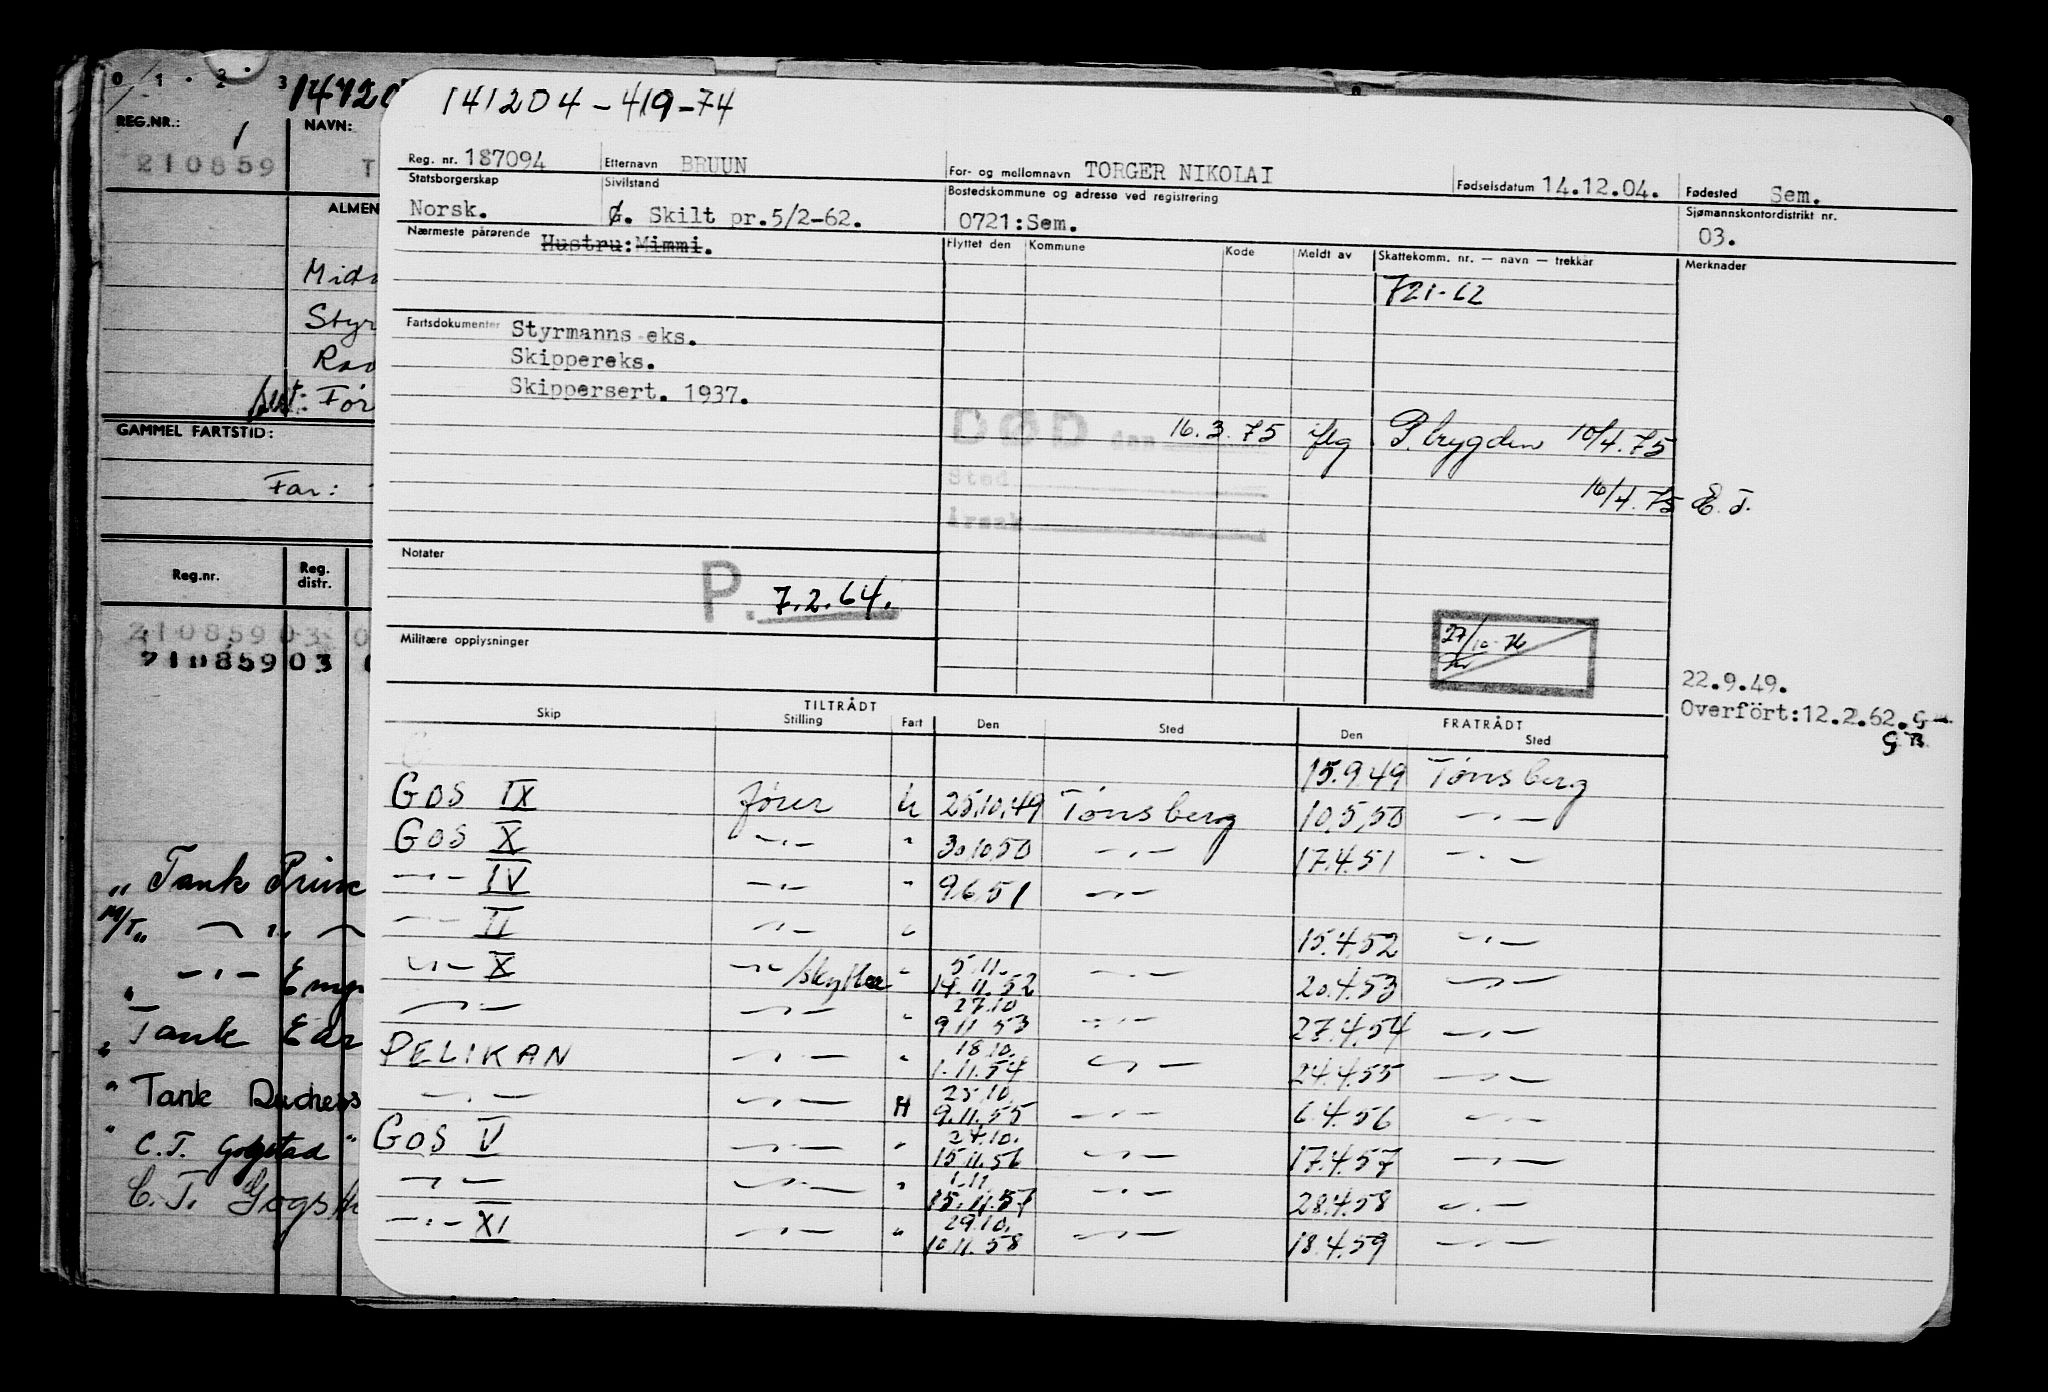 0 1 2 3
141204-419-74
REG.NR.: 1 NAVN:
210859
Reg. nr. 187094 Etternavn BRUUN For- og mellomnavn TORGER NIKOLAI Fødselsdatum 14.12.04. Fødested Sem.
Statsborgerskap Sivilstand Bostedskommune og adresse ved registrering Sjømannskontordistrikt nr.
Norsk. G. Skilt pr.5/2-62. 0721:Sem. 03.
Nærmeste pårørende Hustru:Mimmi. Flyttet den Kommune Kode Meldt av Skattekomm. nr. — navn — trekkår Merknader
721-62
Fartsdokumenter Styrmanns eks.
Skippereks.
Skippersert. 1937.
DØD den 16.3.75 iflg P.brygden 10/4.75
Sted
16/4.75 E.T.
Årsak
Notater
P. 7.2.64.
27/10-76
Militære opplysninger
22.9.49.
Overfört:12.2.62.
G.B.
TILTRÅDT FRATRÅDT
Skip Stilling Fart Den Sted Den Sted
15.9.49 Tønsberg
GOS IX fører U 25.10.49 Tønsberg 10.5.50 —"—
GOS X —"— " 30.10.50 —"— 17.4.51 —"—
—"— IV —"— " 9.6.51 —"—
—"— II —"— " 15.4.52 —"—
—"— X —"—/skytter " 5.11. 14.11.52 —"— 20.4.53 —"—
—"— —"— " 27.10 9.11.53 —"— 27.4.54 —"—
PELIKAN —"— " 18.10. 1.11.54 —"— 24.4.55 —"—
—"— —"— H 25.10. 9.11.55 —"— 6.4.56 —"—
GOS V —"— " 24.10. 15.11.56 —"— 17.4.57 —"—
—"— —"— " 1.11. 15.11.57 —"— 28.4.58 —"—
—"— XI —"— " 29.10. 10.11.58 —"— 18.4.59 —"—
ALMEN
Styr
Før
GAMMEL FARTSTID:
Far:
Reg.nr. Reg. distr.
210859 03 0
210859 03
" Tank Prince
M/T " —"—
" —"— Emp
" Tank Ear
" Tank Duchess
" C.T. Gogstad "
C.T. Gogst